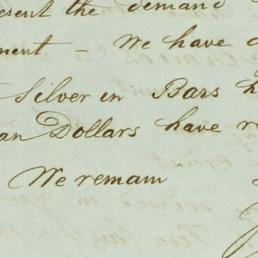 esent the demand
ment – We have
Silver in Bars h
an Dollars have r
We remain